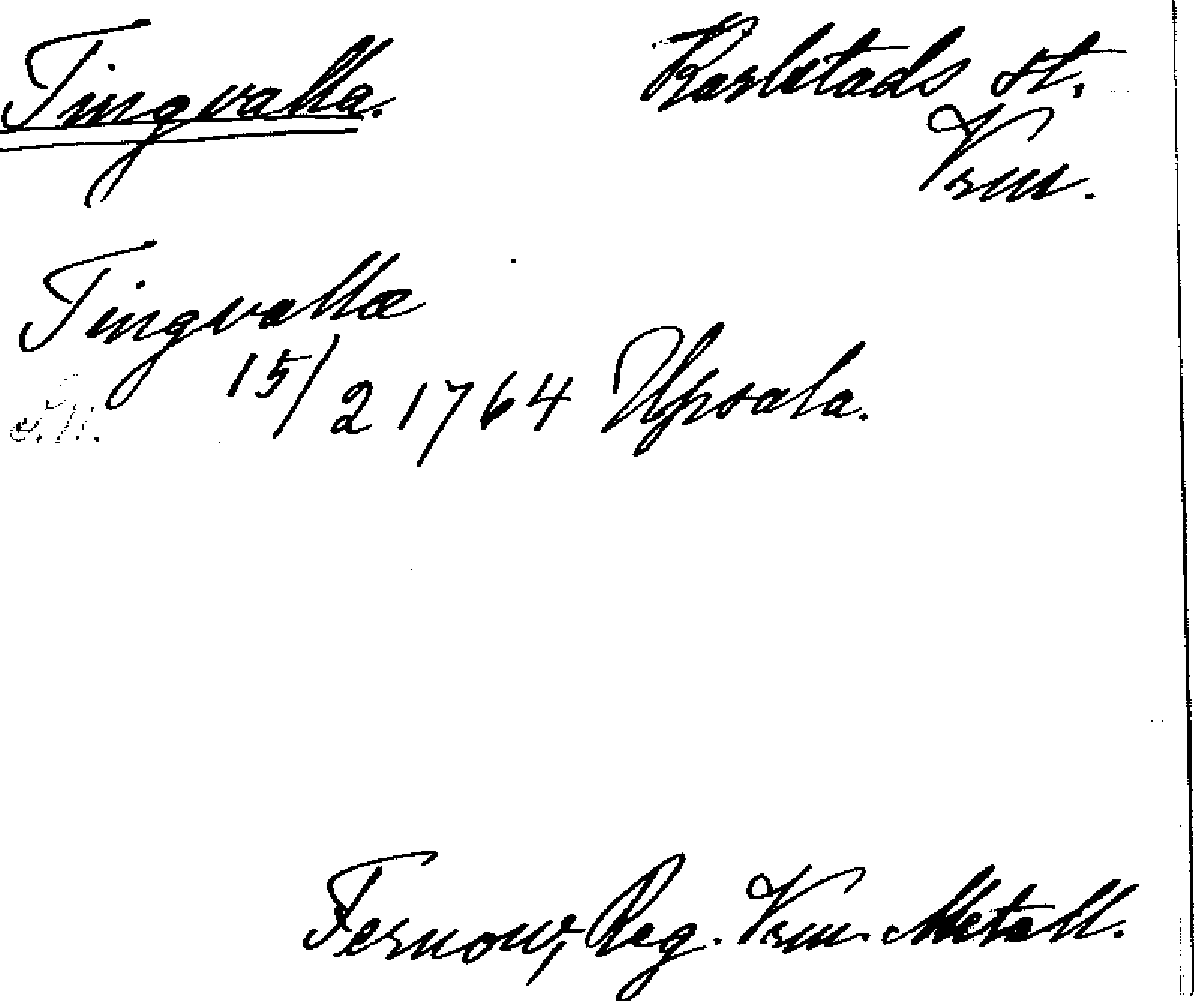 Tingvalla. Karlstads st.
Vrm.
Tingvalla
15/2 1764 Upsala.
Fernow, Reg. Vrm. Metall.